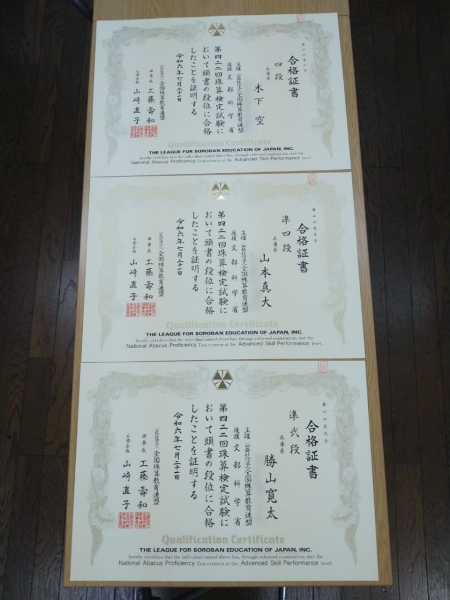 合格証書
四段
兵庫県
木下 空
主催 公益社団法人全国珠算教育連盟
後援 文部科学省
第四二二回珠算検定試験に
おいて頭書の段位に合格
したことを証明する
令和六年七月二十一日
公益社団法人全国珠算教育連盟
理事長 工藤壽和
山﨑直子
Qualification Certificate
THE LEAGUE FOR SOROBAN EDUCATION OF JAPAN, INC.
hereby certifies that the individual named above has, through referred examination, met the
National Abacus Proficiency Test criteria at the Advanced Skill Performance level.
合格証書
準四段
兵庫県
山本真大
主催 公益社団法人全国珠算教育連盟
後援 文部科学省
第四二二回珠算検定試験に
おいて頭書の段位に合格
したことを証明する
令和六年七月二十一日
公益社団法人全国珠算教育連盟
理事長 工藤壽和
山﨑直子
Qualification Certificate
THE LEAGUE FOR SOROBAN EDUCATION OF JAPAN, INC.
hereby certifies that the individual named above has, through referred examination, met the
National Abacus Proficiency Test criteria at the Advanced Skill Performance level.
合格証書
準弐段
兵庫県
勝山寛太
主催 公益社団法人全国珠算教育連盟
後援 文部科学省
第四二二回珠算検定試験に
おいて頭書の段位に合格
したことを証明する
令和六年七月二十一日
公益社団法人全国珠算教育連盟
理事長 工藤壽和
山﨑直子
Qualification Certificate
THE LEAGUE FOR SOROBAN EDUCATION OF JAPAN, INC.
hereby certifies that the individual named above has, through referred examination, met the
National Abacus Proficiency Test criteria at the Advanced Skill Performance level.